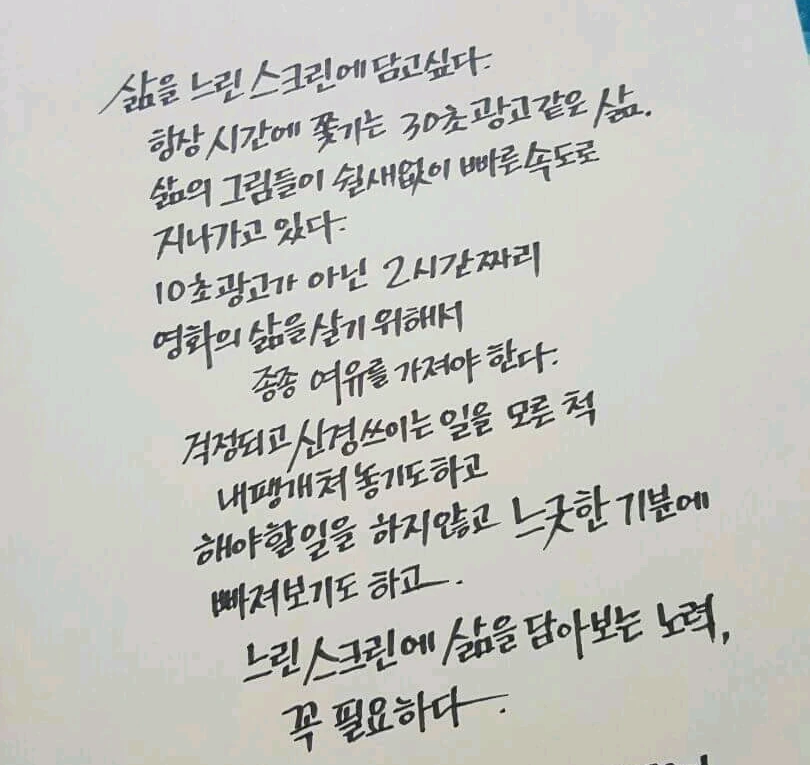 삶을 느린 스크린에 담고싶다.
항상 시간에 쫓기는 30초 광고같은 삶.
삶의 그림들이 쉴새없이 빠른속도로
지나가고 있다.
10초광고가 아닌 2시간짜리
영화의 삶을 살기 위해서
종종 여유를 가져야 한다.
걱정되고 신경쓰이는 일을 모른 척
내팽개쳐 놓기도하고
해야할일을 하지않고 느긋한 기분에
빠져보기도 하고.
느린 스크린에 삶을 담아보는 노력,
꼭 필요하다.